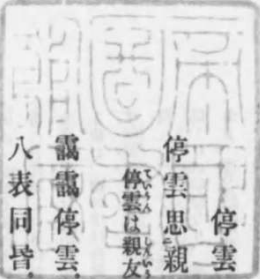 停雲
停雲思親
停雲は親友
靄靄停雲。
八表同昬。